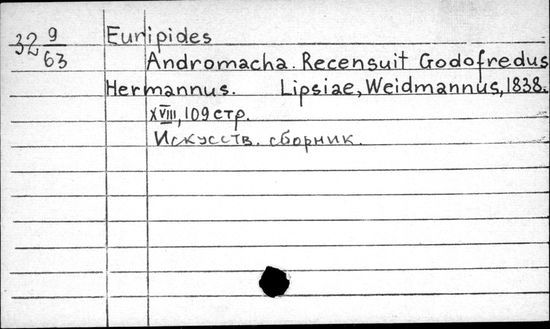 32 9/63
Euripides
Andromacha. Recensuit Godofredus
Hermannus. Lipsiae, Weidmannus, 1838.
XVIII, 109 стр.
Искусств. сборник.